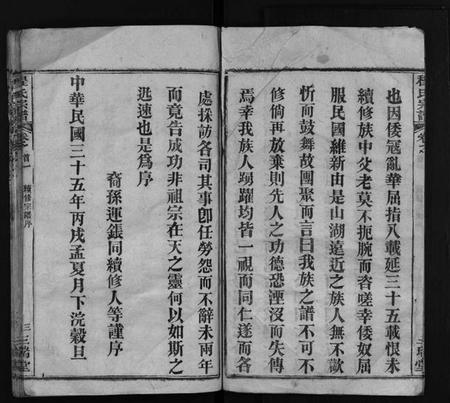 也因倭寇亂華屈指八載延三十五載恨未
續修族中父老莫不扼腕而咨嗟幸倭奴屈
服民國維新由是山湖遠近之族人無不歡
忻而鼓舞故團聚而言曰我族之譜不可不
修倘再放棄則先人之功德恐湮沒而失傳
焉幸我族人踴躍均皆一視而同仁遂而各
處採訪各司其事卽任勞怨而不辭未兩年
而竟告成功非祖宗在天之靈何以如斯之
迅速也是為序
裔孫運鋹同續修人等謹序
中華民國三十五年丙戌孟夏月下浣穀旦
程氏宗譜
卷之首一
續修宗譜序
三瑞堂